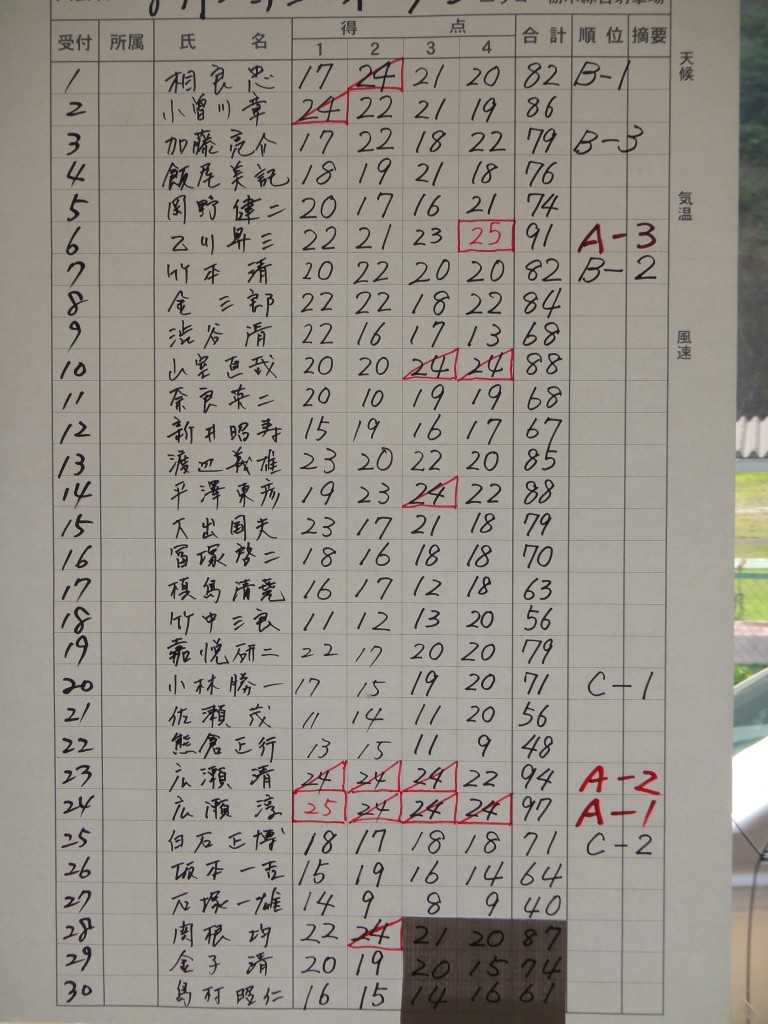 受付 所属 氏 名 得 点 合計 順位 摘要
1 2 3 4
天候
気温
風速
1 相良忠 17 24 21 20 82 B-1
2 小曽川章 24 22 21 19 86
3 加藤亮介 17 22 18 22 79 B-3
4 飯尾美記 18 19 21 18 76
5 岡野健二 20 17 16 21 74
6 乙川昇三 22 21 23 25 91 A-3
7 竹本 清 20 22 20 20 82 B-2
8 金 三郎 22 22 18 22 84
9 渋谷 清 22 16 17 13 68
10 山室直哉 20 20 24 24 88
11 奈良英二 20 10 19 19 68
12 新井昭寿 15 19 16 17 67
13 渡辺義雄 23 20 22 20 85
14 平澤東彦 19 23 24 22 88
15 大出国夫 23 17 21 18 79
16 冨塚啓二 18 16 18 18 70
17 槙島清堯 16 17 12 18 63
18 竹中三良 11 12 13 20 56
19 嘉悦研二 22 17 20 20 79
20 小林勝一 17 15 19 20 71 C-1
21 佐瀬 茂 11 14 11 20 56
22 熊倉正行 13 15 11 9 48
23 広瀬 清 24 24 24 22 94 A-2
24 広瀬 淳 25 24 24 24 97 A-1
25 白石正博 18 17 18 18 71 C-2
26 坂本一吉 15 19 16 14 64
27 石塚一雄 14 9 8 9 40
28 関根 均 22 24 21 20 87
29 金子 清 20 19 20 15 74
30 島村昭仁 16 15 14 16 61